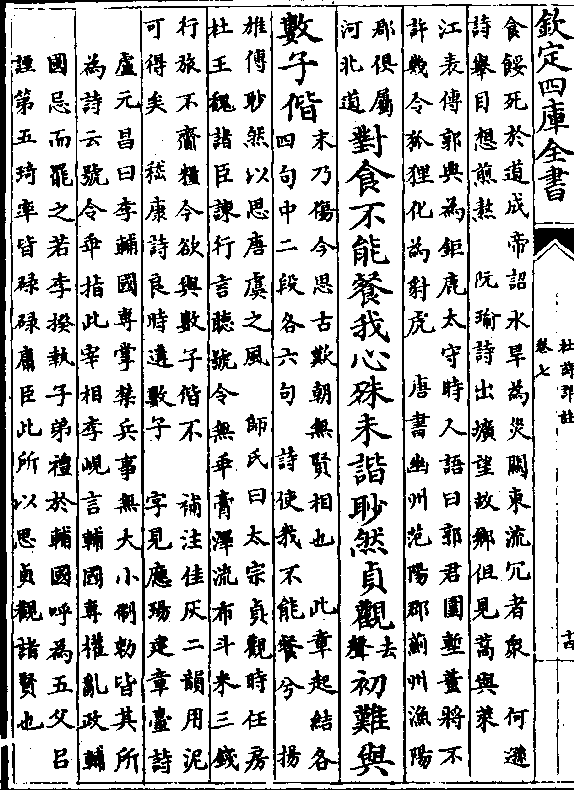 欽定四庫全書
杜詩詳註
卷七
十四
食餒死於道成帝詔水旱為災關東流冗者衆 何遜
詩舉目想煎熬 阮瑜詩出壙望故鄉但見蒿與萊
江表傳郭典為鉅鹿太守時人語曰郭君圍塹董將不
許幾令狐狸化為豺虎 唐書幽州范陽郡薊州漁陽
郡俱屬
河北道
對食不能餐我心殊未諧眇然貞觀
去
聲
初難與
數子偕
末乃傷今思古歎朝無賢相也 此章起結各
四句中二段各六句 詩使我不能餐兮 揚
雄傳眇然以思唐虞之風 師氏曰太宗貞觀時任房
杜王魏諸臣諫行言聽號令無乖膏澤流布斗米三錢
行旅不齎糧今欲與數子偕不 補注佳灰二韻用泥
可得矣 嵇康詩良時遘數子 字見應瑒建章臺詩
盧元昌曰李輔國專掌禁兵事無大小制勅皆其所
為詩云號令乖指此宰相李峴言輔國專權亂政輔
國忌而罷之若李揆執子弟禮於輔國呼為五父呂
諲第五琦率皆碌碌庸臣此所以思貞觀諸賢也